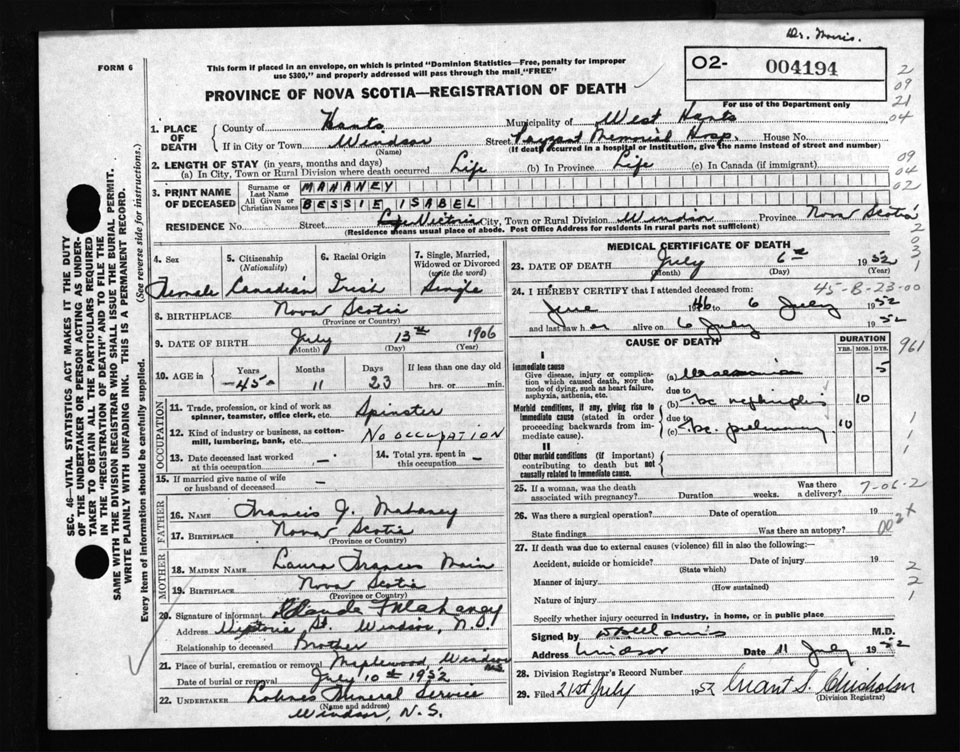 Dr. Morris.
FORM 6
This form if placed in an envelope, on which is printed "Dominion Statistics—Free, penalty for improper
use $300," and properly addressed will pass through the mail "FREE"
O2- 004194
PROVINCE OF NOVA SCOTIA—REGISTRATION OF DEATH
For use of the Department only
2
09
21
04
1. PLACE OF DEATH
County of Hants Municipality of West Hants
If in City or Town Windsor Street Payzant Memorial Hosp. House No.
(Name) (If death occurred in a hospital or institution, give the name instead of street and number)
2. LENGTH OF STAY (in years, months and days)
(a) In City, Town or Rural Division where death occurred Life (b) In Province Life (c) In Canada (if immigrant)
09
04
02
3. PRINT NAME OF DECEASED
Surname or Last Name MAHANEY
All Given or Christian Names BESSIE ISABEL
RESIDENCE No. Street Victoria City, Town or Rural Division Windsor Province Nova Scotia
(Residence means usual place of abode. Post Office Address for residents in rural parts not sufficient)
2
0
3
1
4. Sex 5. Citizenship (Nationality) 6. Racial Origin 7. Single, Married, Widowed or Divorced (write the word)
Female Canadian Irish Single
8. BIRTHPLACE Nova Scotia
(Province or Country)
9. DATE OF BIRTH July 13th 1906
(Month) (Day) (Year)
10. AGE in Years Months Days If less than one day old
45 11 23 hrs. or min.
OCCUPATION
11. Trade, profession or kind of work as spinner, teamster, office clerk, etc. Spinster
12. Kind of industry or business, as cotton-mill, lumbering, bank, etc. NO OCCUPATION
13. Date deceased last worked at this occupation — 14. Total yrs. spent in this occupation —
15. If married give name of wife or husband of deceased —
FATHER
16. NAME Francis J. Mahaney
17. BIRTHPLACE Nova Scotia
(Province or Country)
MOTHER
18. MAIDEN NAME Laura Frances Main
19. BIRTHPLACE Nova Scotia
(Province or Country)
20. Signature of informant Claude Mahaney
Address Victoria St. Windsor, N.S.
Relationship to deceased Brother
21. Place of burial, cremation or removal Maplewood, Windsor N.S.
Date of burial or removal July 10th 1952
22. UNDERTAKER Lohnes Funeral Service
(Name and address)
Windsor, N.S.
MEDICAL CERTIFICATE OF DEATH
23. DATE OF DEATH July 6th 1952
(Month) (Day) (Year)
45-8-23-00
24. I HEREBY CERTIFY that I attended deceased from:
June 1946 to 6 July 1952
and last saw her alive on 6 July 1952
CAUSE OF DEATH
DURATION
YRS. MOS. DYS.
961
I
Immediate cause
Give disease, injury or complication which caused death, NOT the mode of dying, such as heart failure, asphyxia, asthenia, etc.
(a) 5
due to
(b) tbc nephritis 10
Morbid conditions, if any, giving rise to immediate cause (stated in order proceeding backwards from immediate cause).
due to
(c) tbc pulmonary 10
II
Other morbid conditions (if important) contributing to death but not causally related to immediate cause.
25. If a woman, was the death associated with pregnancy? Duration weeks. Was there a delivery?
7-06-2
26. Was there a surgical operation? Date of operation 19
State findings Was there an autopsy?
002x
27. If death was due to external causes (violence) fill in also the following:—
Accident, suicide or homicide? Date of injury 19
(State which)
Manner of injury
(How sustained)
Nature of injury
Specify whether injury occurred in industry, in home, or in public place
2
2
1
Signed by M.D.
Address Windsor Date 11 July 1952
28. Division Registrar's Record Number
29. Filed 21st July 1952 Grant S. Chisholm
(Division Registrar)
SEC. 46—VITAL STATISTICS ACT MAKES IT THE DUTY
OF THE UNDERTAKER OR PERSON ACTING AS UNDER-
TAKER TO OBTAIN ALL THE PARTICULARS REQUIRED
IN THE "REGISTRATION OF DEATH" AND TO FILE THE
SAME WITH THE DIVISION REGISTRAR WHO SHALL ISSUE THE BURIAL PERMIT.
WRITE PLAINLY WITH UNFADING INK. THIS IS A PERMANENT RECORD.
Every item of information should be carefully supplied. (See reverse side for instructions.)